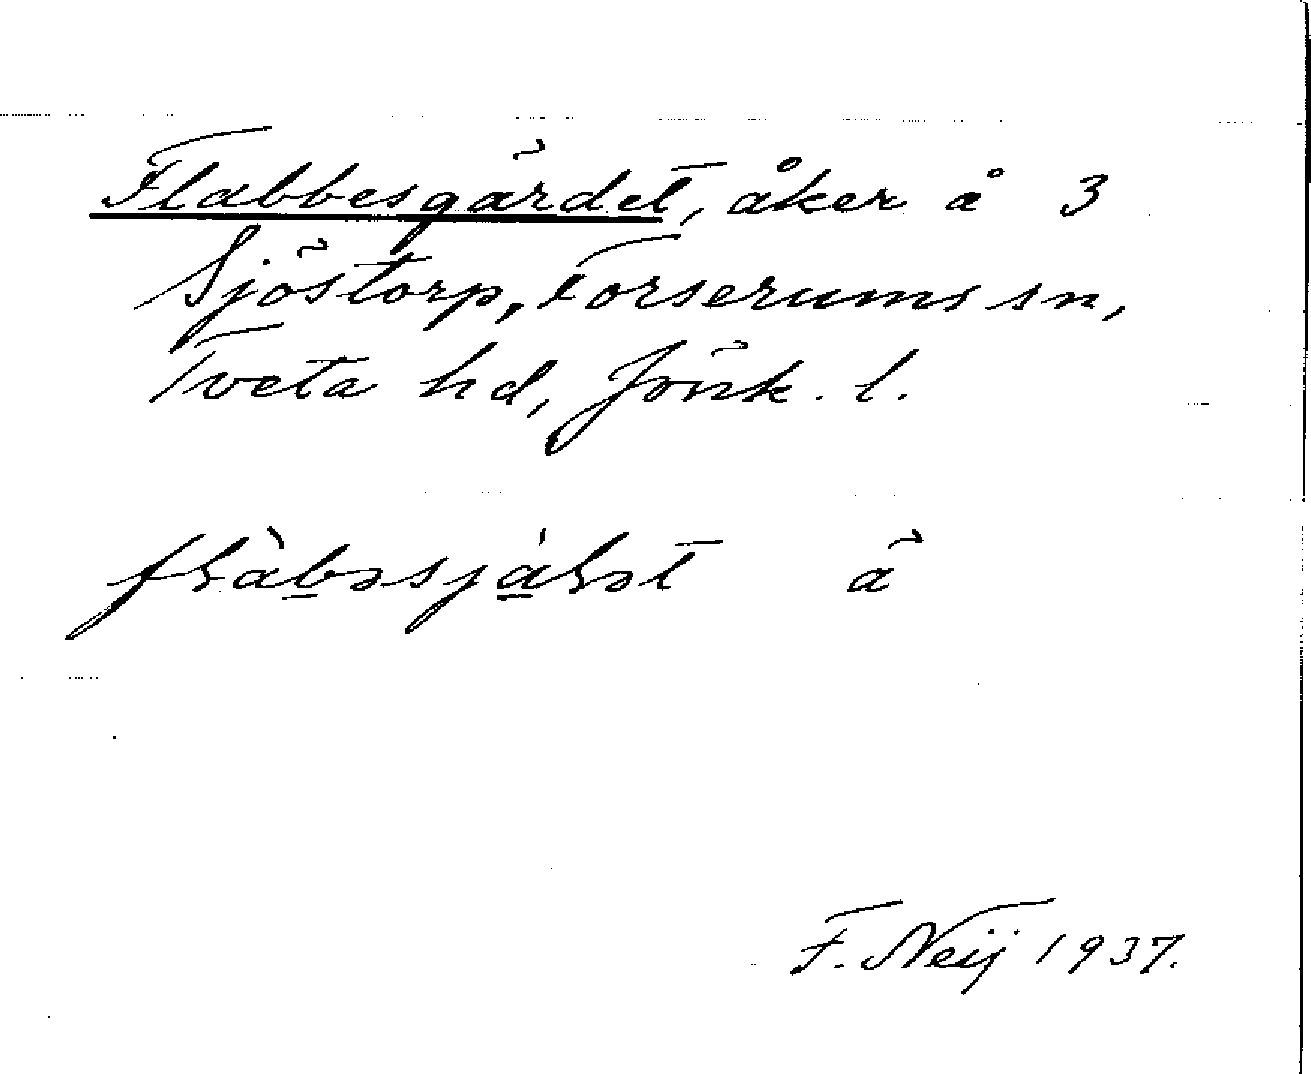 Flabbesgärdet, åker å 3
Sjöstorp, Forserums sn,
Tveta hd, Jönk. l.
ã
F. Neij 1937.